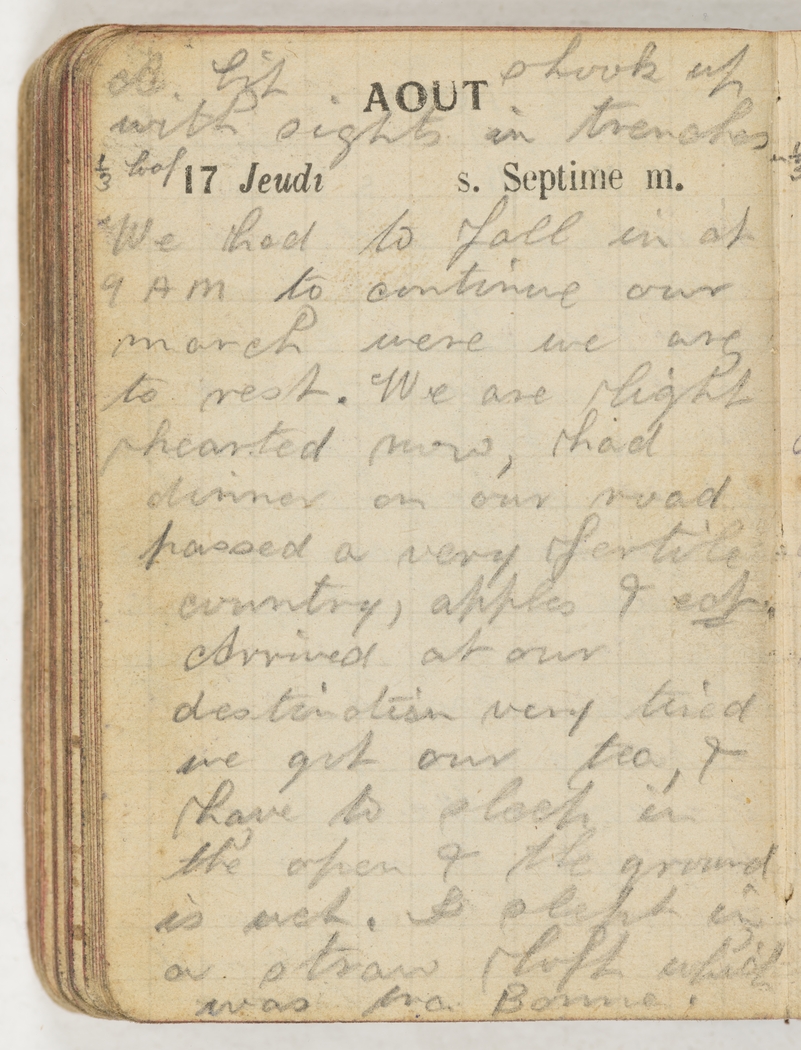 a bit shook up
AOUT
with sights in trenches
1/3 loaf 17 Jeudi s. Septime m.
We had to fall in at
9 AM to continue our
march were we are
to rest. We are light
hearted now, had
dinner on our road
passed a very fertile
country, apples & etc.
Arrived at our
destination very tired
we got our tea, &
have to sleep in
the open & the ground
is wet. I slept in
a straw loft which
was tra Bonne.